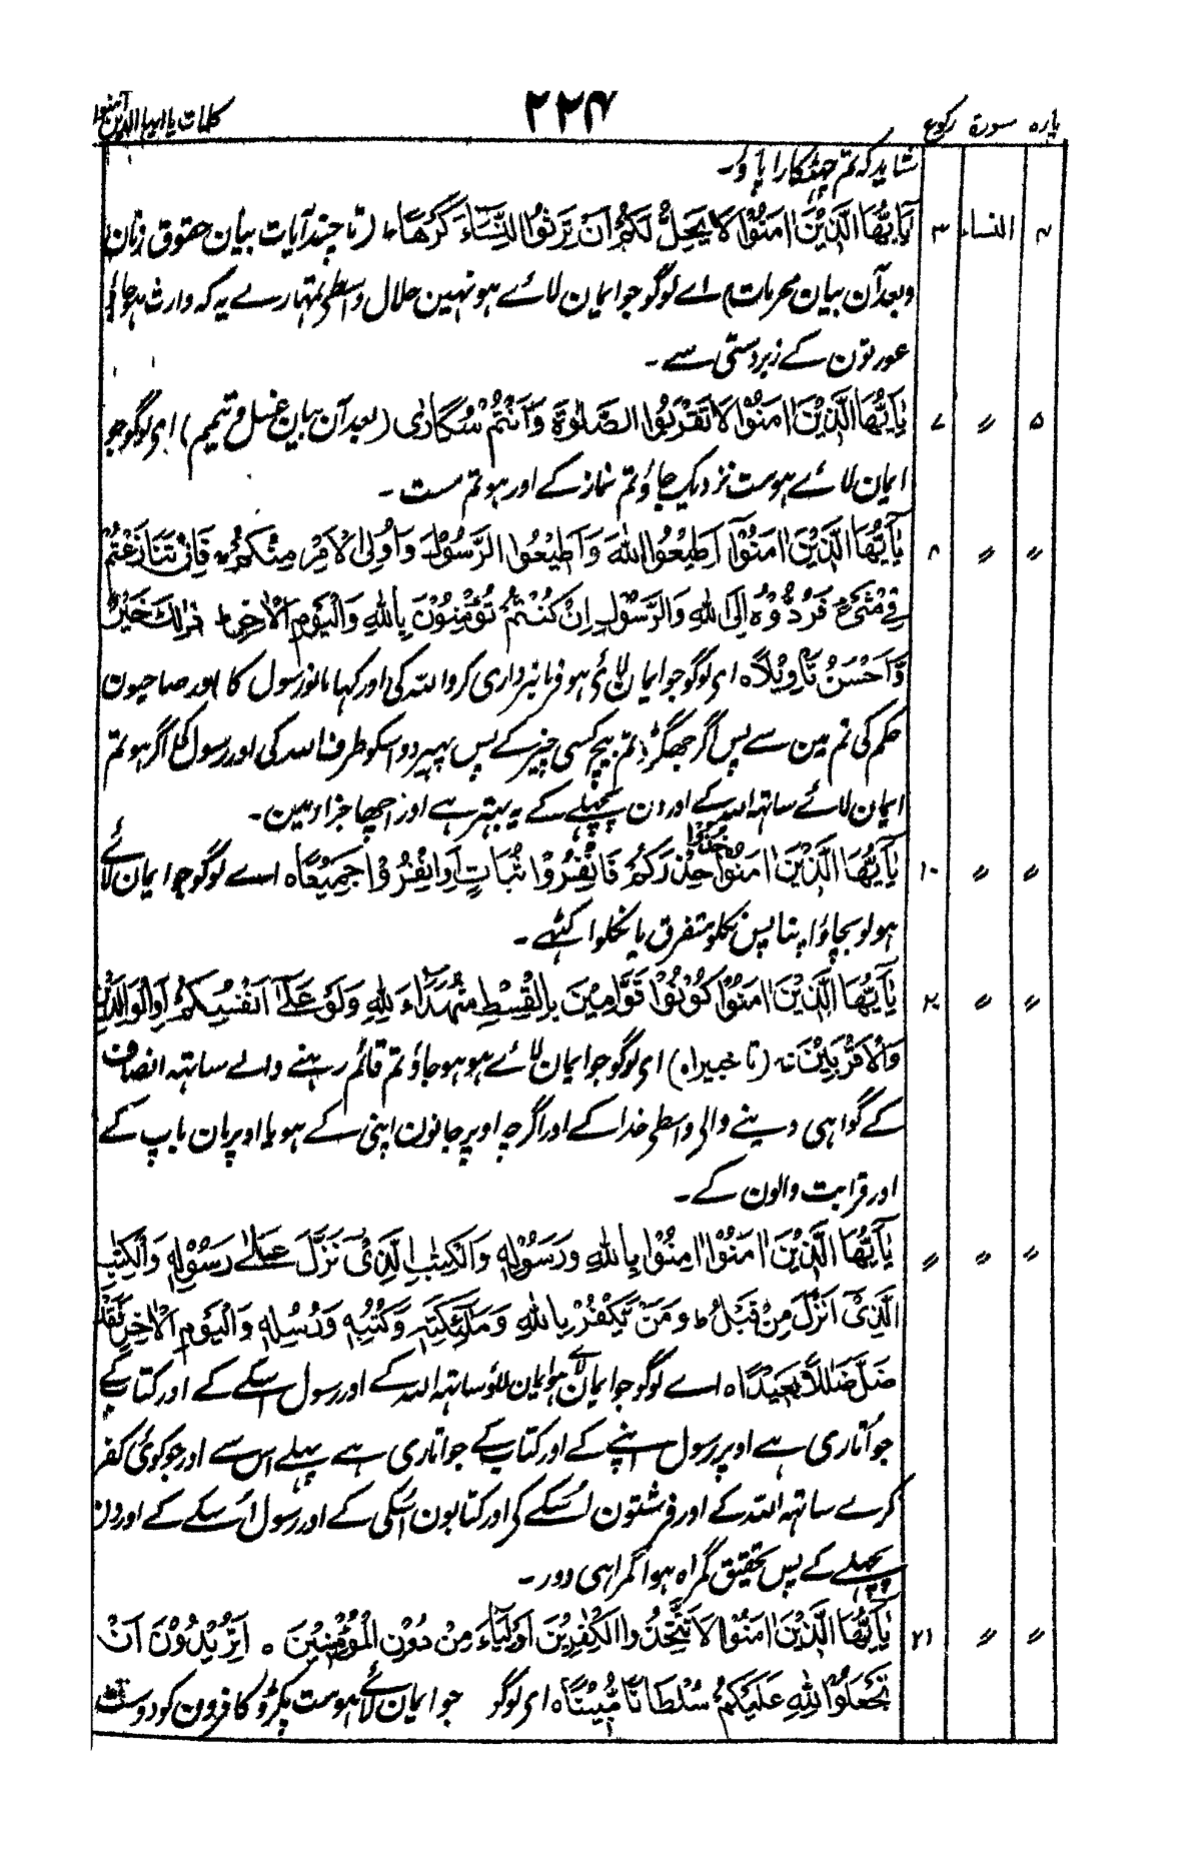 پارہ سورۃ رکوع ۲۲۴ کلمات یا ایہا الذین آمنوا
شاید کہ تم چھٹکارا پاؤ۔
۴ النساء ۳ يَٰٓأَيُّهَا الَّذِيْنَ اٰمَنُوْا لَا يَحِلُّ لَكُمْ اَنْ تَرِثُوا النِّسَآءَ كَرْهًا ؕ (تا چند آیات بیان حقوق زنان
وبعد آن بیان محرمات) اے لوگو جو ایمان لائے ہو نہین حلال واسطی تمہارے یہ کہ وارث ہوجاؤ
عورتون کے زبردستی سے۔
۵ 〃 ۷ يٰٓاَيُّهَا الَّذِيْنَ اٰمَنُوْا لَا تَقْرَبُوا الصَّلٰوةَ وَاَنْتُمْ سُكَارٰى (بعد آن بیان غسل و تیمم) ای لوگو جو
ایمان لائے ہو مت نزدیک جاؤ تم نماز کے اور ہو تم مست۔
〃 〃 ۸ يٰٓاَيُّهَا الَّذِيْنَ اٰمَنُوْٓا اَطِيْعُوا اللّٰهَ وَاَطِيْعُوا الرَّسُوْلَ وَاُولِى الْاَمْرِ مِنْكُمْ ۚ فَاِنْ تَنَازَعْتُمْ
فِيْ شَيْءٍ فَرُدُّوْهُ اِلَى اللّٰهِ وَالرَّسُوْلِ اِنْ كُنْتُمْ تُؤْمِنُوْنَ بِاللّٰهِ وَالْيَوْمِ الْاٰخِرِ ؕ ذٰلِكَ خَيْرٌ
وَّاَحْسَنُ تَاْوِيْلًا ہ ای لوگو جو ایمان لائے ہو فرمانبرداری کرو اللہ کی اور کہا مانو رسول کا اور صاحبون
حکم کی تم مین سے پس اگر جھگڑو تم بیچ کسی چیز کے پس پھیر دو اسکو طرف اللہ کی اور رسول کے اگر ہو تم
ایمان لائے ساتہ اللہ کے اور دن پچھلے کے یہ بہتر ہے اور اچھا جزا مین۔
〃 〃 ۱۰ يٰٓاَيُّهَا الَّذِيْنَ اٰمَنُوْا خُذُوْا حِذْرَكُمْ فَانْفِرُوْا ثُبَاتٍ اَوِ انْفِرُوْا جَمِيْعًا ہ اے لوگو جو ایمان لائے
ہو لو بچاؤ اپنا پس نکلو متفرق یا نکلو اکٹھے۔
〃 〃 ۲۰ يٰٓاَيُّهَا الَّذِيْنَ اٰمَنُوْا كُوْنُوْا قَوَّامِيْنَ بِالْقِسْطِ شُهَدَآءَ لِلّٰهِ وَلَوْ عَلٰٓى اَنْفُسِكُمْ اَوِ الْوَالِدَيْنِ
وَالْاَقْرَبِيْنَ ۚ (تا خبیراہ) ای لوگو جو ایمان لائے ہو ہوجاؤ تم قائم رہنے والے ساتہ انصاف
کے گواہی دینے والی واسطی خدا کے اور اگرچہ اوپر جانون اپنی کے ہو یا اوپر مان باپ کے
اور قرابت والون کے۔
〃 〃 〃 يٰٓاَيُّهَا الَّذِيْنَ اٰمَنُوْٓا اٰمِنُوْا بِاللّٰهِ وَرَسُوْلِهٖ وَالْكِتٰبِ الَّذِيْ نَزَّلَ عَلٰى رَسُوْلِهٖ وَالْكِتٰبِ
الَّذِيْٓ اَنْزَلَ مِنْ قَبْلُ ؕ وَمَنْ يَّكْفُرْ بِاللّٰهِ وَمَلٰٓئِكَتِهٖ وَكُتُبِهٖ وَرُسُلِهٖ وَالْيَوْمِ الْاٰخِرِ فَقَدْ
ضَلَّ ضَلٰلًاۢ بَعِيْدًا ہ اے لوگو جو ایمان لائے ہو ایمان لاؤ ساتہ اللہ کے اور رسول اسکے کے اور کتاب کے
جو اُتاری ہے اوپر رسول اپنے کے اور کتاب کے جو اتاری ہے پہلے اس سے اور جو کوئی کفر
کرے ساتہ اللہ کے اور فرشتون اُسکے کی اور کتابون اُسکی کے اور رسول اُسکے کے اور دن
پچھلے کے پس تحقیق گمراہ ہوا گمراہی دور۔
〃 〃 ۲۱ يٰٓاَيُّهَا الَّذِيْنَ اٰمَنُوْا لَا تَتَّخِذُوا الْكٰفِرِيْنَ اَوْلِيَآءَ مِنْ دُوْنِ الْمُؤْمِنِيْنَ ہ اَتُرِيْدُوْنَ اَنْ
تَجْعَلُوْا لِلّٰهِ عَلَيْكُمْ سُلْطَانًا مُّبِيْنًا ہ ای لوگو جو ایمان لائے ہو مت پکڑو کافرون کو دوست